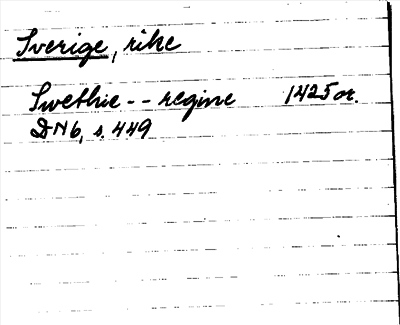 Sverige, rike
Swethie -- regine 1425 or.
DN 6, s. 449